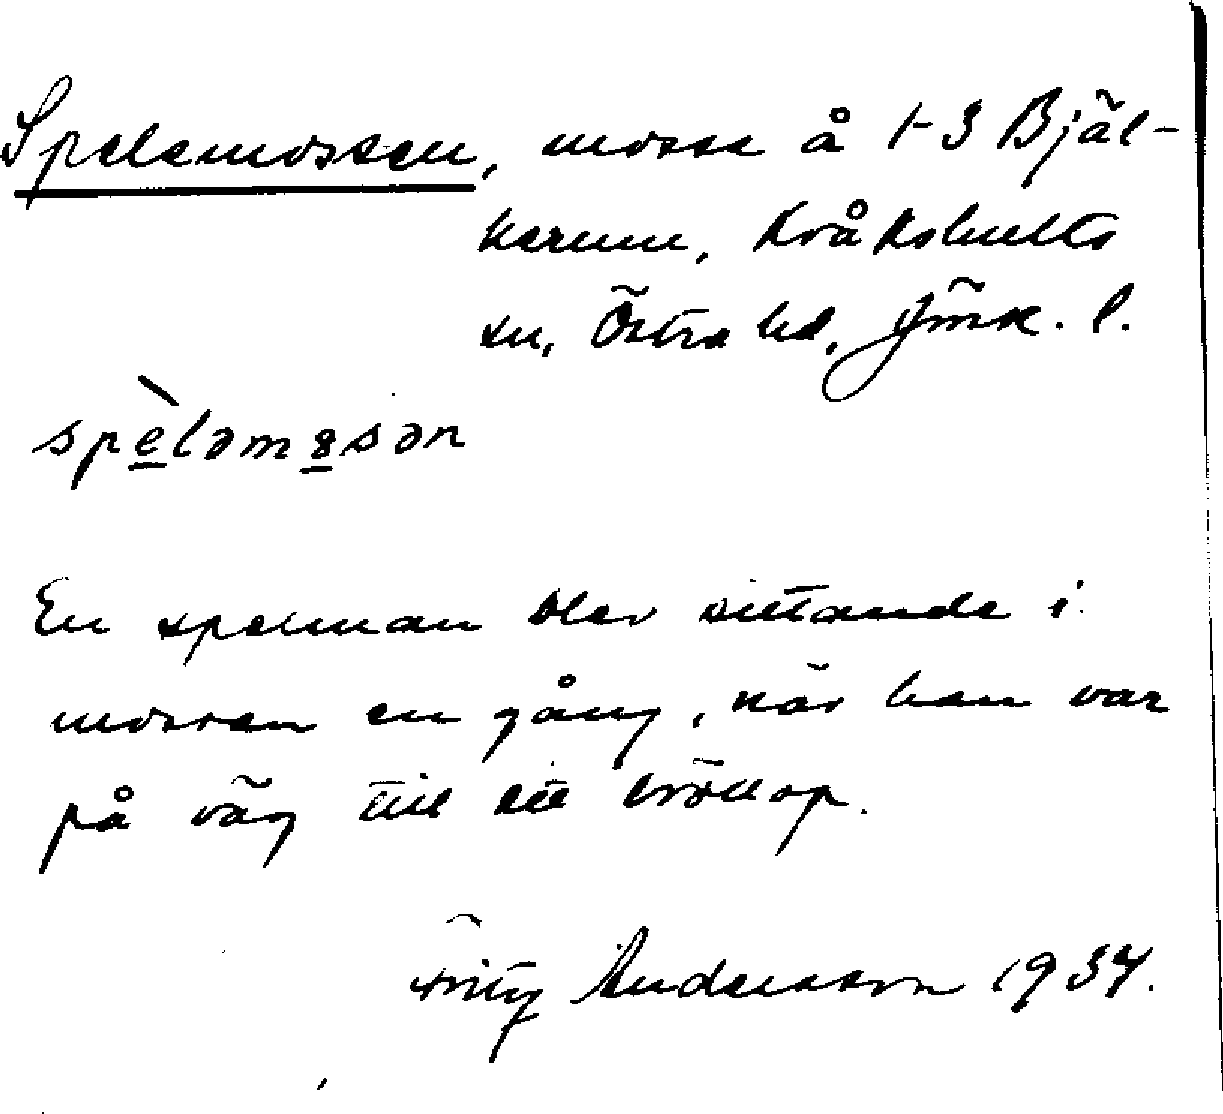 Spelemossen, mosse å 1-3 Bjäl-
kerum, Kråkshults
sn, Östra hd, Jönk. l.
spèləm8sən
En spelman blev sittande i
mossen en gång, när han var
på väg till ett bröllop.
Fritz Andersson 1934.